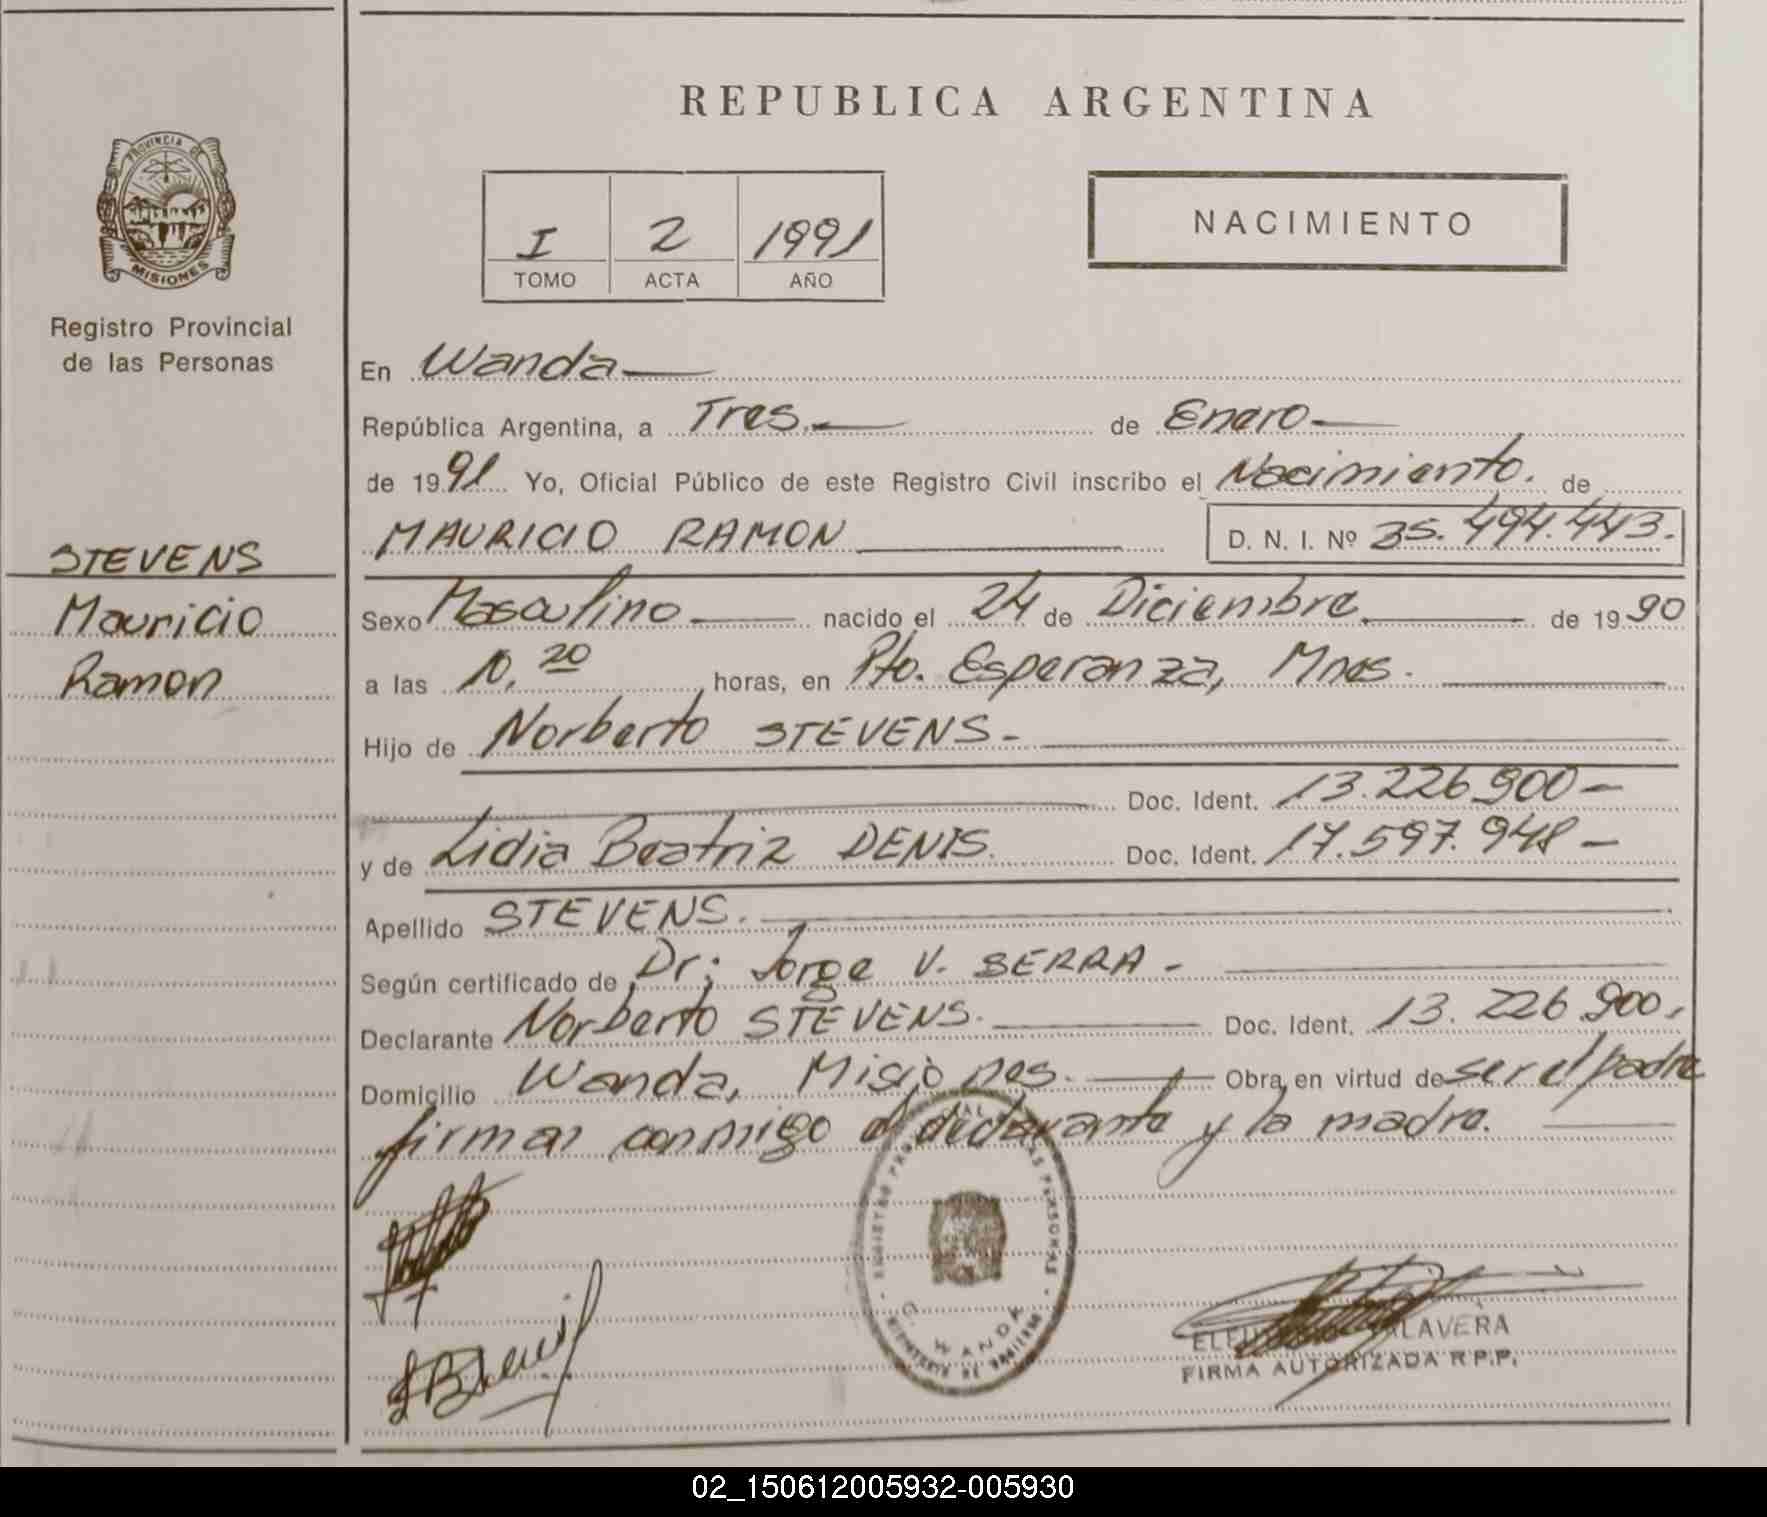 REPUBLICA ARGENTINA
PROVINCIA DE
MISIONES
Registro Provincial
de las Personas
I 2 1991
TOMO ACTA AÑO
NACIMIENTO
En Wanda
República Argentina, a Tres. de Enero
de 1991 Yo, Oficial Público de este Registro Civil inscribo el Nacimiento. de
MAURICIO RAMON D. N. I. Nº 35.494.443.
STEVENS
Mauricio
Ramon
Sexo Masculino nacido el 24 de Diciembre de 1990
a las 10,20 horas, en Pto. Esperanza, Mnes.
Hijo de Norberto STEVENS-
Doc. Ident. 13.226.900-
y de Lidia Beatriz DENIS. Doc. Ident. 17.597.948-
Apellido STEVENS.
Según certificado de Dr; Jorge V. SERRA-
Declarante Norberto STEVENS. Doc. Ident. 13.226.900,
Domicilio Wanda, Misiones. Obra en virtud de ser el padre
firman conmigo el declarante y la madre.
WANDA
TALAVERA
FIRMA AUTORIZADA R.P.P.
02_150612005932-005930